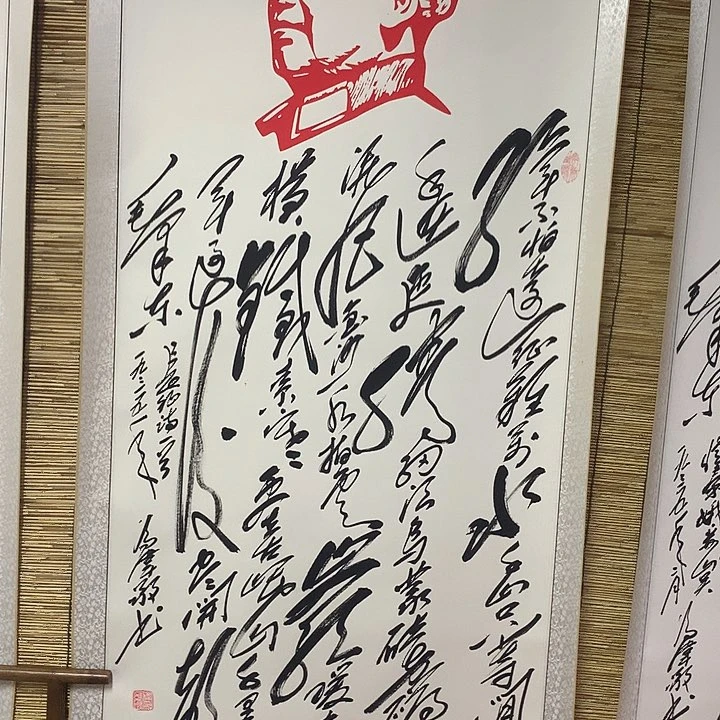 红军不怕远征难万水千山只等闲
逶迤腾细浪乌蒙磅礴
泥丸金沙水拍云崖暖
横铁索寒更喜岷山千里
军过后尽开颜
毛泽东
七律长征一首
一九三五年
毛泽东
忆秦娥娄山关